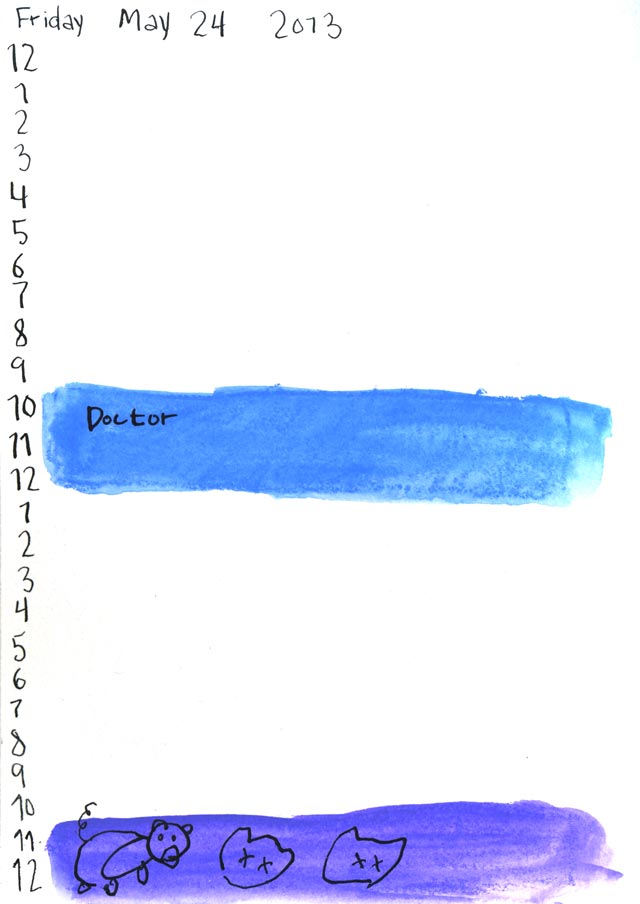 Friday May 24 2013
12
1
2
3
4
5
6
7
8
9
10 Doctor
11
12
1
2
3
4
5
6
7
8
9
10
11
12